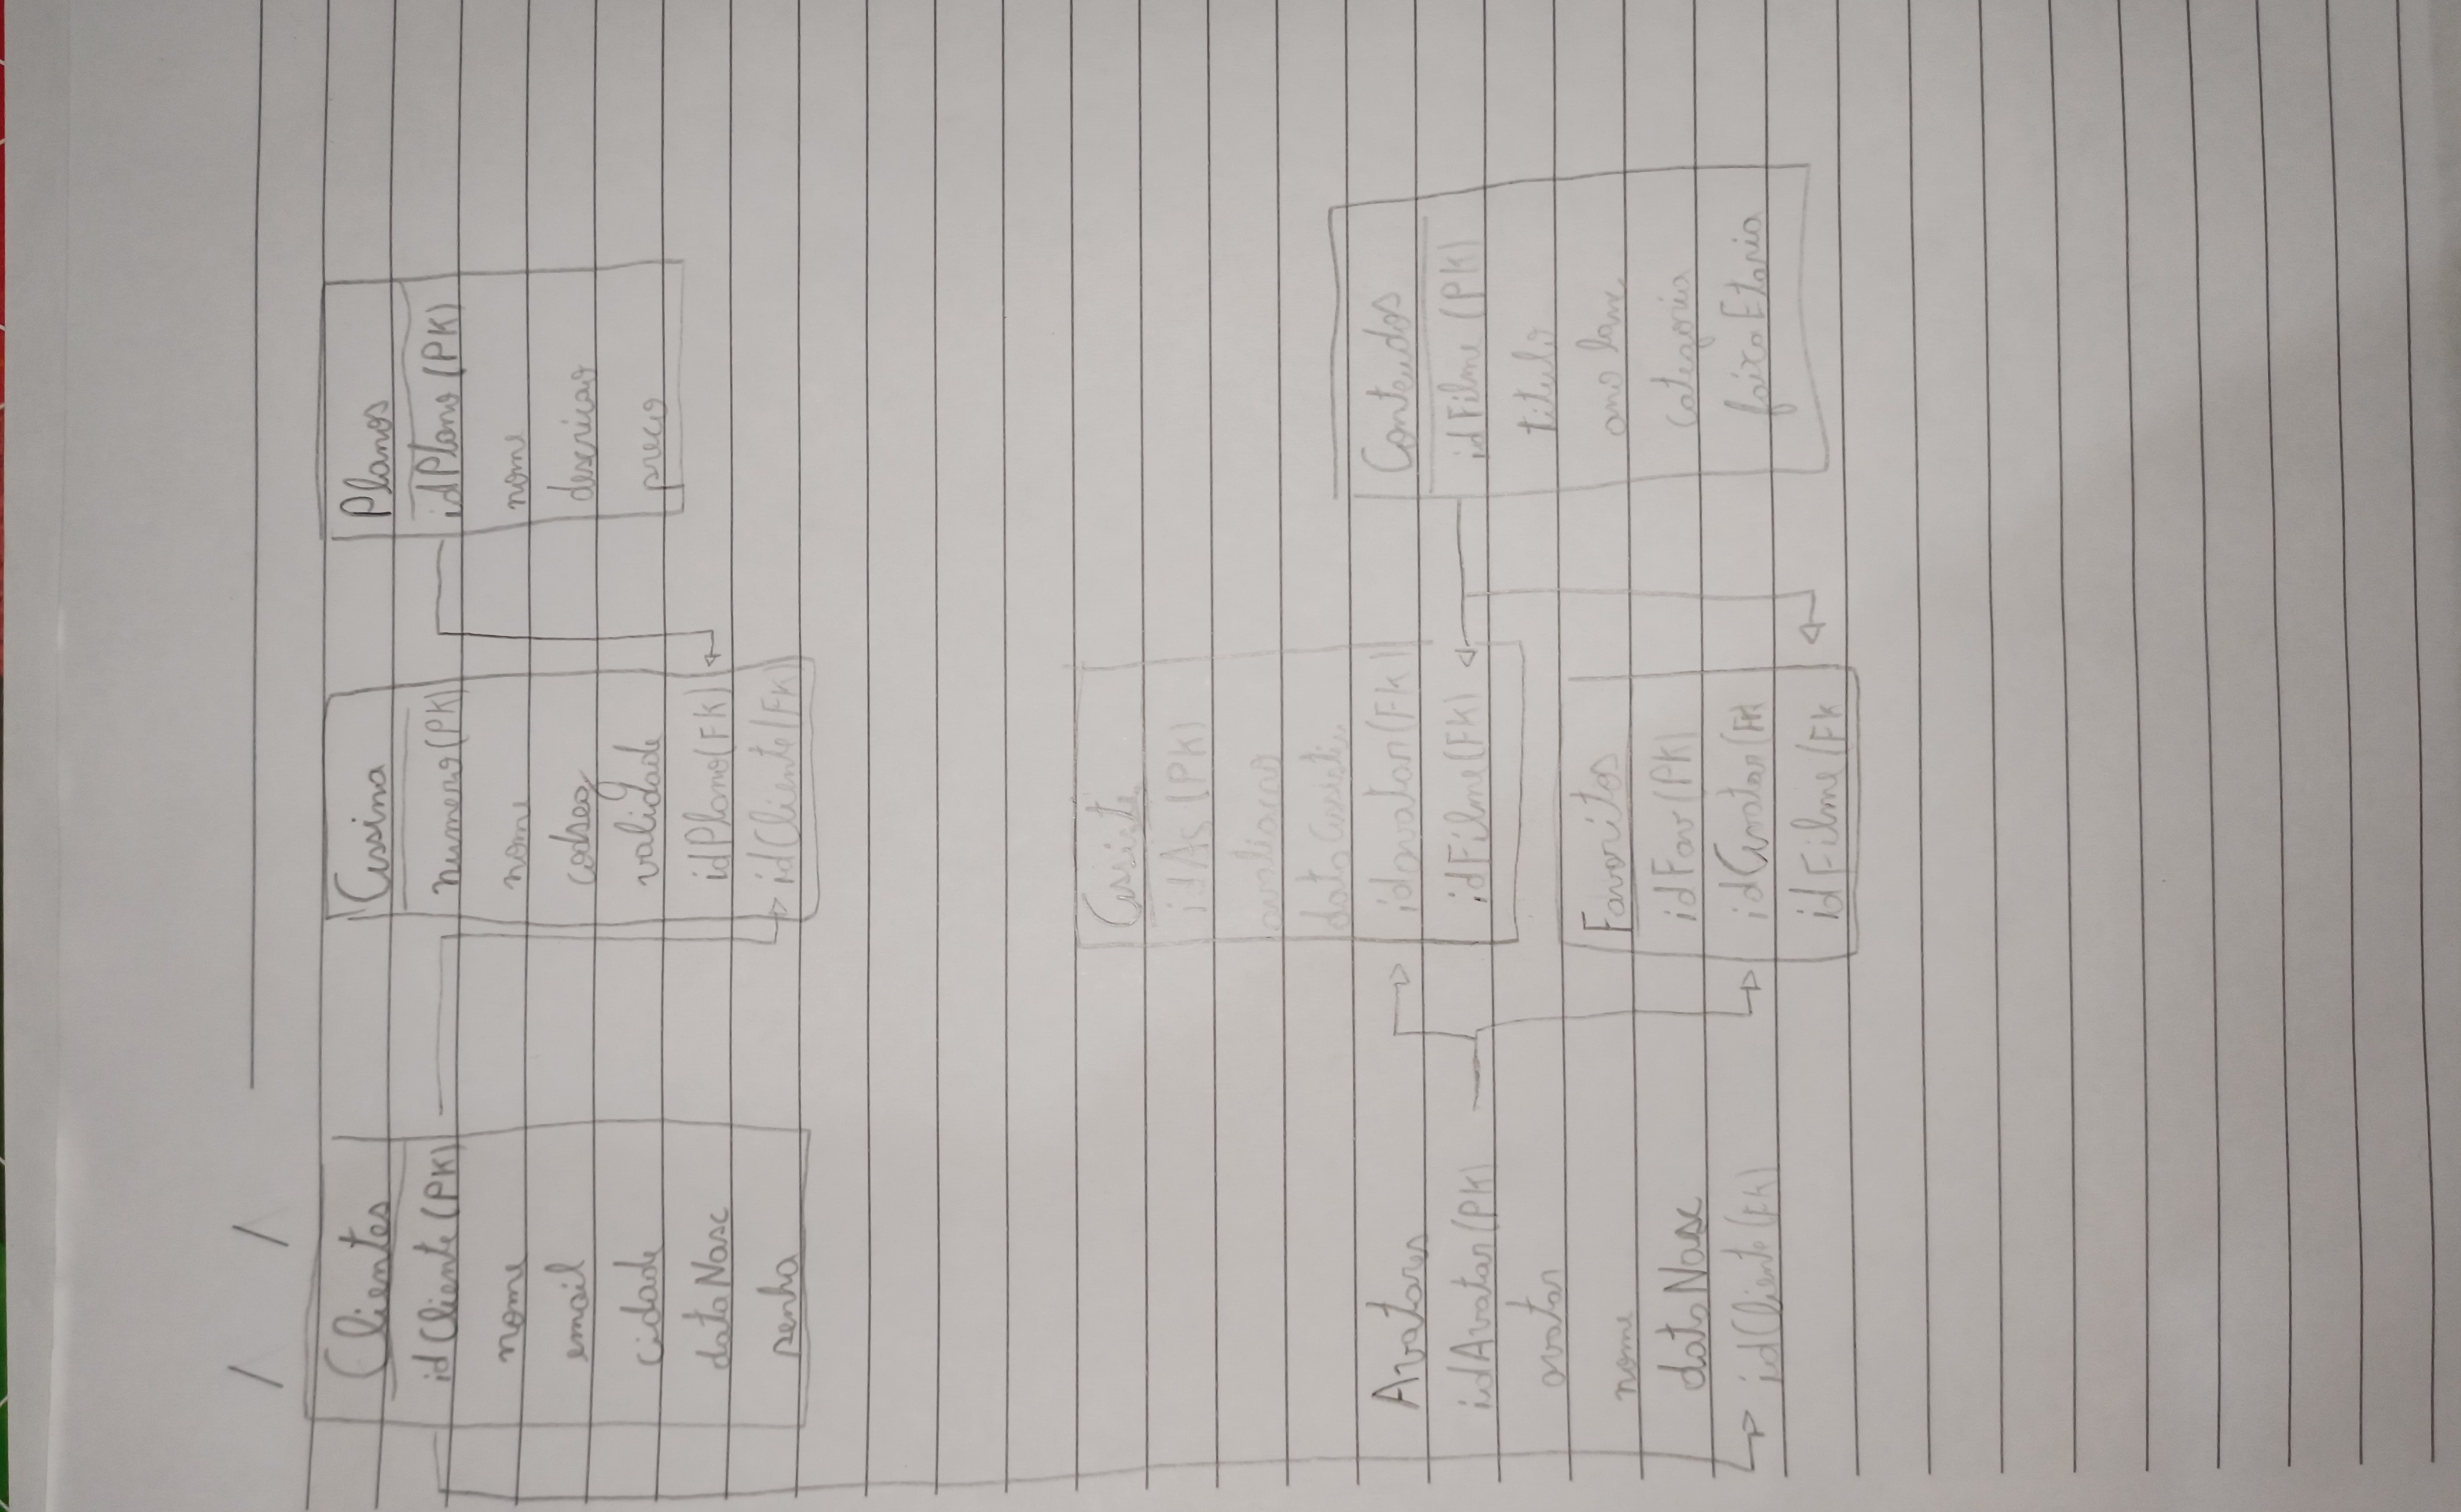 Clientes
idCliente (PK)
nome
email
cidade
dataNasc
senha
Assina
numero (PK)
nome
codseg
validade
idPlano (FK)
idCliente (FK)
Planos
idPlano (PK)
nome
descricao
preco
Avatares
idAvatar (PK)
avatar
nome
dataNasc
idCliente (FK)
Assiste
idAs (PK)
avaliacao
idavatar (FK)
idFilme (FK)
Favoritos
idFav (PK)
idAvatar (FK
idFilme (FK
Conteudos
idFilme (PK)
titulo
ano lanc
Categoria
faixa Etaria